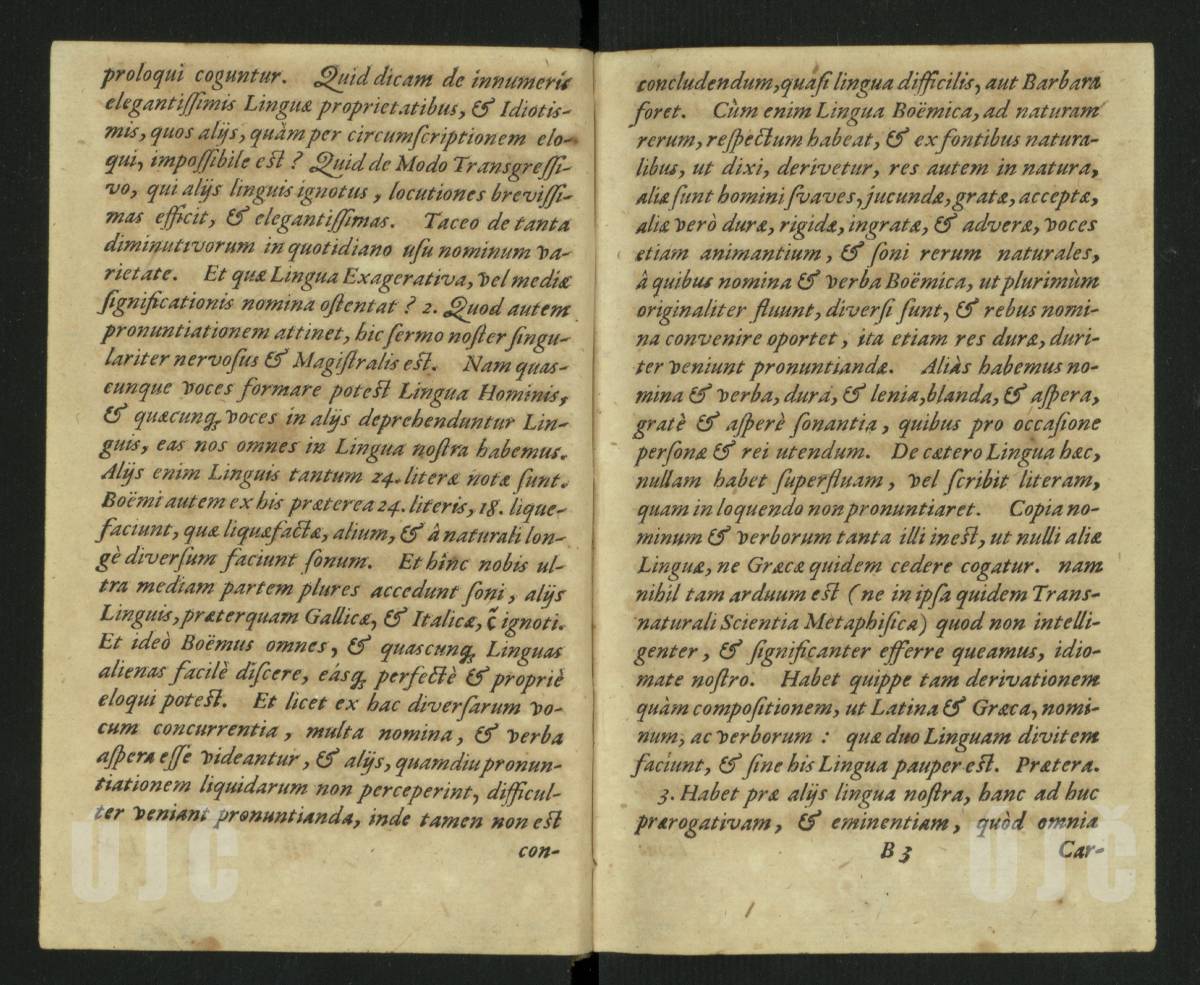 proloqui coguntur. Quid dicam de innumeris
elegantissimis Linguæ proprietatibus, & Idiotis-
mis, quos alijs, quàm per circumscriptionem elo-
qui, impossibile est? Quid de Modo Transgressi-
vo, qui alijs linguis ignotus, locutiones brevissi-
mas efficit, & elegantissimas. Taceo de tanta
diminutivorum in quotidiano usu nominum va-
rietate. Et quæ Lingua Exagerativa, vel mediæ
significationis nomina ostentat? 2. Quod autem
pronuntiationem attinet, hic sermo noster singu-
lariter nervosus & Magistralis est. Nam quas-
cunque voces formare potest Lingua Hominis,
& quæcunq; voces in alijs deprehenduntur Lin-
guis, eas nos omnes in Lingua nostra habemus.
Alijs enim Linguis tantum 24. literæ notæ sunt.
Boëmi autem ex his præterea 24. literis, 18. lique-
faciunt, quæ liquæfactæ, alium, & â naturali lon-
gè diversum faciunt sonum. Et hînc nobis ul-
tra mediam partem plures accedunt soni, alijs
Linguis, præterquam Gallicæ, & Italicæ, c̃ ignoti.
Et ideò Boëmus omnes, & quascunq; Linguas
alienas facilè discere, eásq; perfectè & propriè
eloqui potest. Et licet ex hac diversarum vo-
cum concurrentia, multa nomina, & verba
aspera esse videantur, & alijs, quamdiu pronun-
tiationem liquidarum non perceperint, difficul-
ter veniant pronuntianda, inde tamen non est
con-
concludendum, quasi lingua difficilis, aut Barbara
foret. Cùm enim Lingua Boëmica, ad naturam
rerum, respectum habeat, & ex fontibus natura-
libus, ut dixi, derivetur, res autem in natura,
aliæ sunt homini svaves, jucundæ, gratæ, acceptæ,
aliæ verò duræ, rigidæ, ingratæ, & adveræ, voces
etiam animantium, & soni rerum naturales,
â quibus nomina & verba Boëmica, ut plurimùm
originaliter fluunt, diversi sunt, & rebus nomi-
na convenire oportet, ita etiam res duræ, duri-
ter veniunt pronuntiandæ. Aliàs habemus no-
mina & verba, dura, & lenia, blanda, & aspera,
gratè & asperè sonantia, quibus pro occasione
personæ & rei utendum. De cætero Lingua hæc,
nullam habet superfluam, vel scribit literam,
quam in loquendo non pronuntiaret. Copia no-
minum & verborum tanta illi inest, ut nulli aliæ
Linguæ, ne Græcæ quidem cedere cogatur. nam
nihil tam arduum est (ne in ipsa quidem Trans-
naturali Scientia Metaphisica) quod non intelli-
genter, & significanter efferre queamus, idio-
mate nostro. Habet quippe tam derivationem
quàm compositionem, ut Latina & Græca, nomi-
num, ac verborum: quæ duo Linguam divitem
faciunt, & sine his Lingua pauper est. Prætera.
3. Habet præ alijs lingua nostra, hanc ad huc
prærogativam, & eminentiam, quòd omnia
B 3 Car-
UJČ UJČ